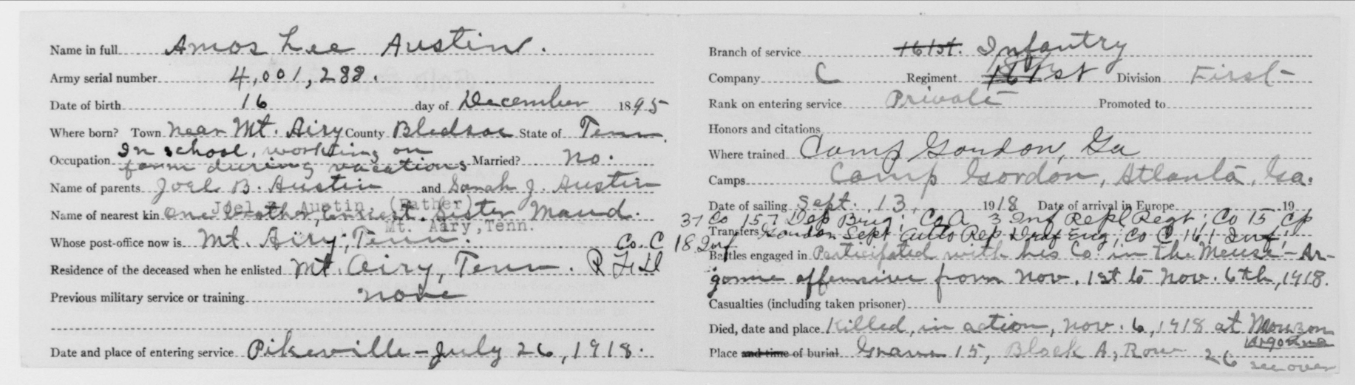 Name in full Amos Lee Austin.
Army serial number 4,001,288.
Date of birth 16 day of December 1895
Where born? Town near Mt. Airy County Bledsoe State of Tenn.
Occupation In school, working on
farm during vacations Married? no.
Name of parents Joel B. Austin and Sarah J. Austin
Name of nearest kin One brother, Ernest. Sister Maud.
Joel Austin, (Father)
Mt. Airy, Tenn.
Whose post-office now is Mt. Airy, Tenn.
Residence of the deceased when he enlisted Mt. Airy, Tenn. R.F.D
Previous military service or training none
Date and place of entering service Pikeville - July 26, 1918.
Branch of service 161st. Infantry
Company C Regiment 161st Division First
Rank on entering service Private Promoted to
Honors and citations
Where trained Camp Gordon, Ga
Camps Camp Gordon, Atlanta, Ga.
Date of sailing Sept. 13, 1918 Date of arrival in Europe 19
37 Co 157 Dep Brig; Co A 3 Inf Repl Regt; Co 15 Cp
Transfers Gordon Sept Auto Rep Draft; Co C 161 Inf;
Co. C 18 Inf
Battles engaged in Participated with his Co. in the Meuse-Ar-
gonne offensive from Nov. 1st to Nov. 6th, 1918.
Casualties (including taken prisoner)
Died, date and place Killed in action, Nov. 6, 1918 at Mouzon
Argonne
Place and time of burial Grave 15, Block A, Row 26
see over